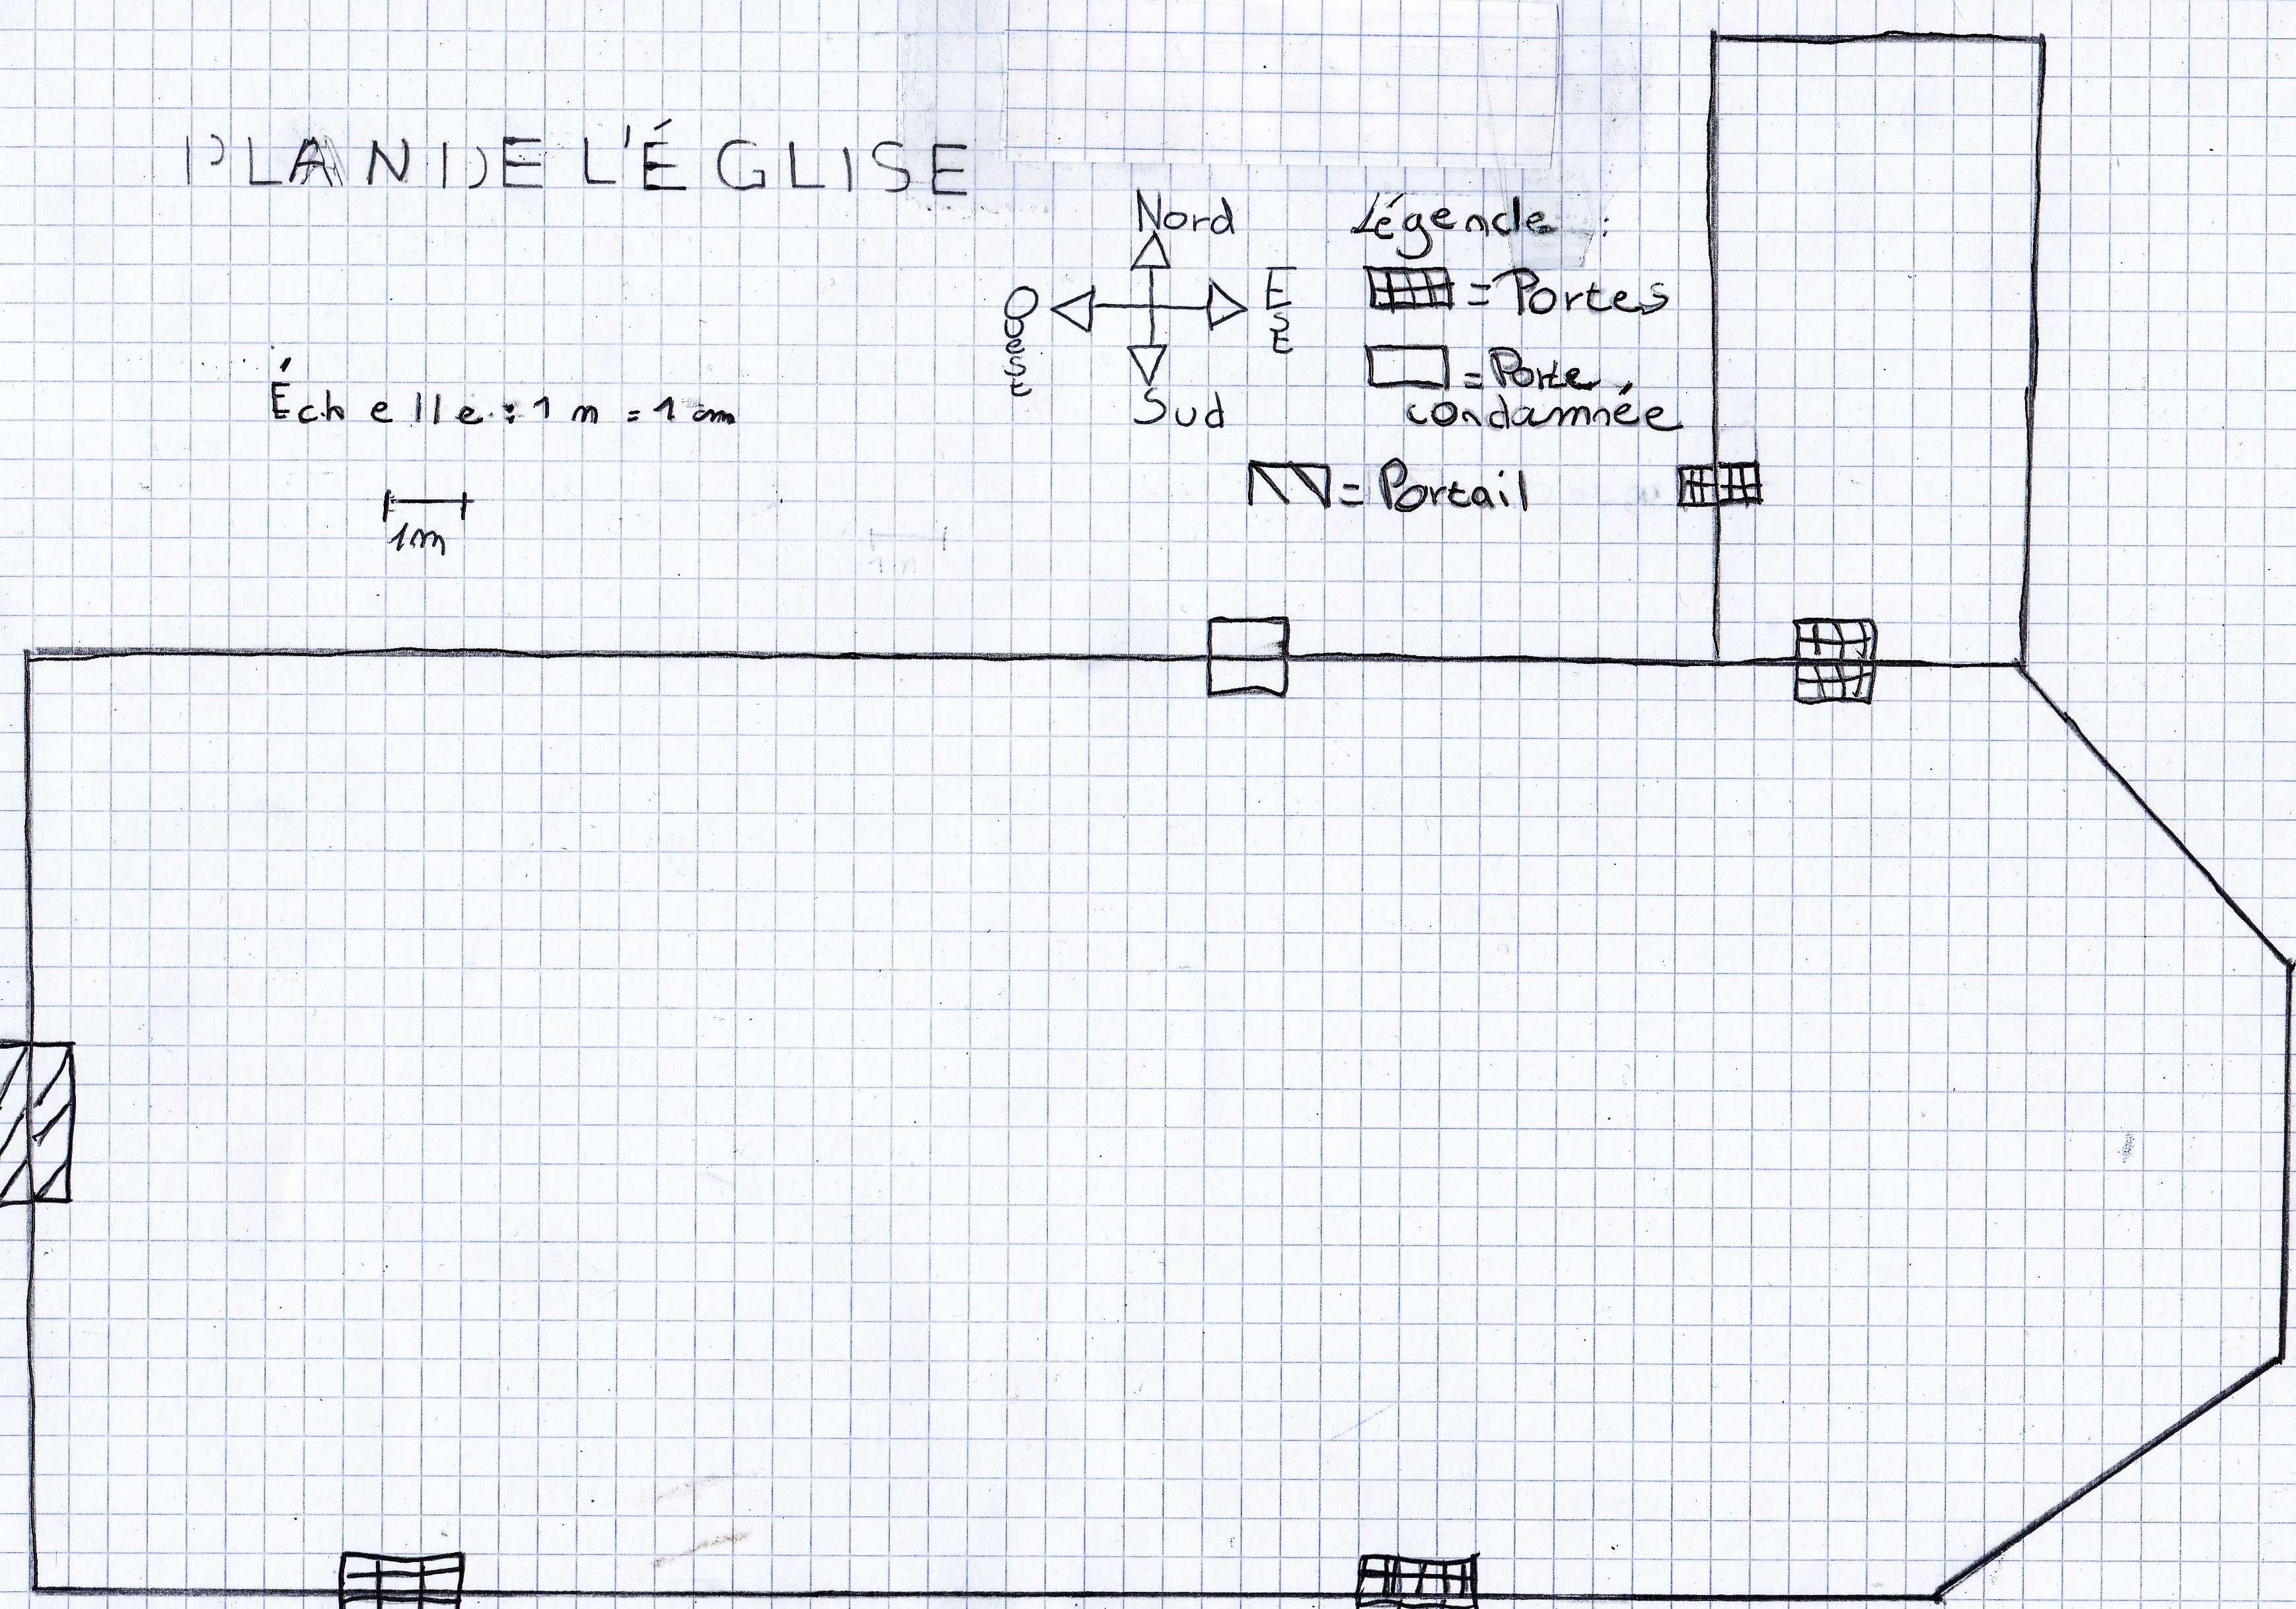 PLAN DE L'ÉGLISE
Échelle : 1 m = 1 cm
1m
Nord
Ouest
Est
Sud
Légende :
= Portes
= Porte
condamnée
= Portail